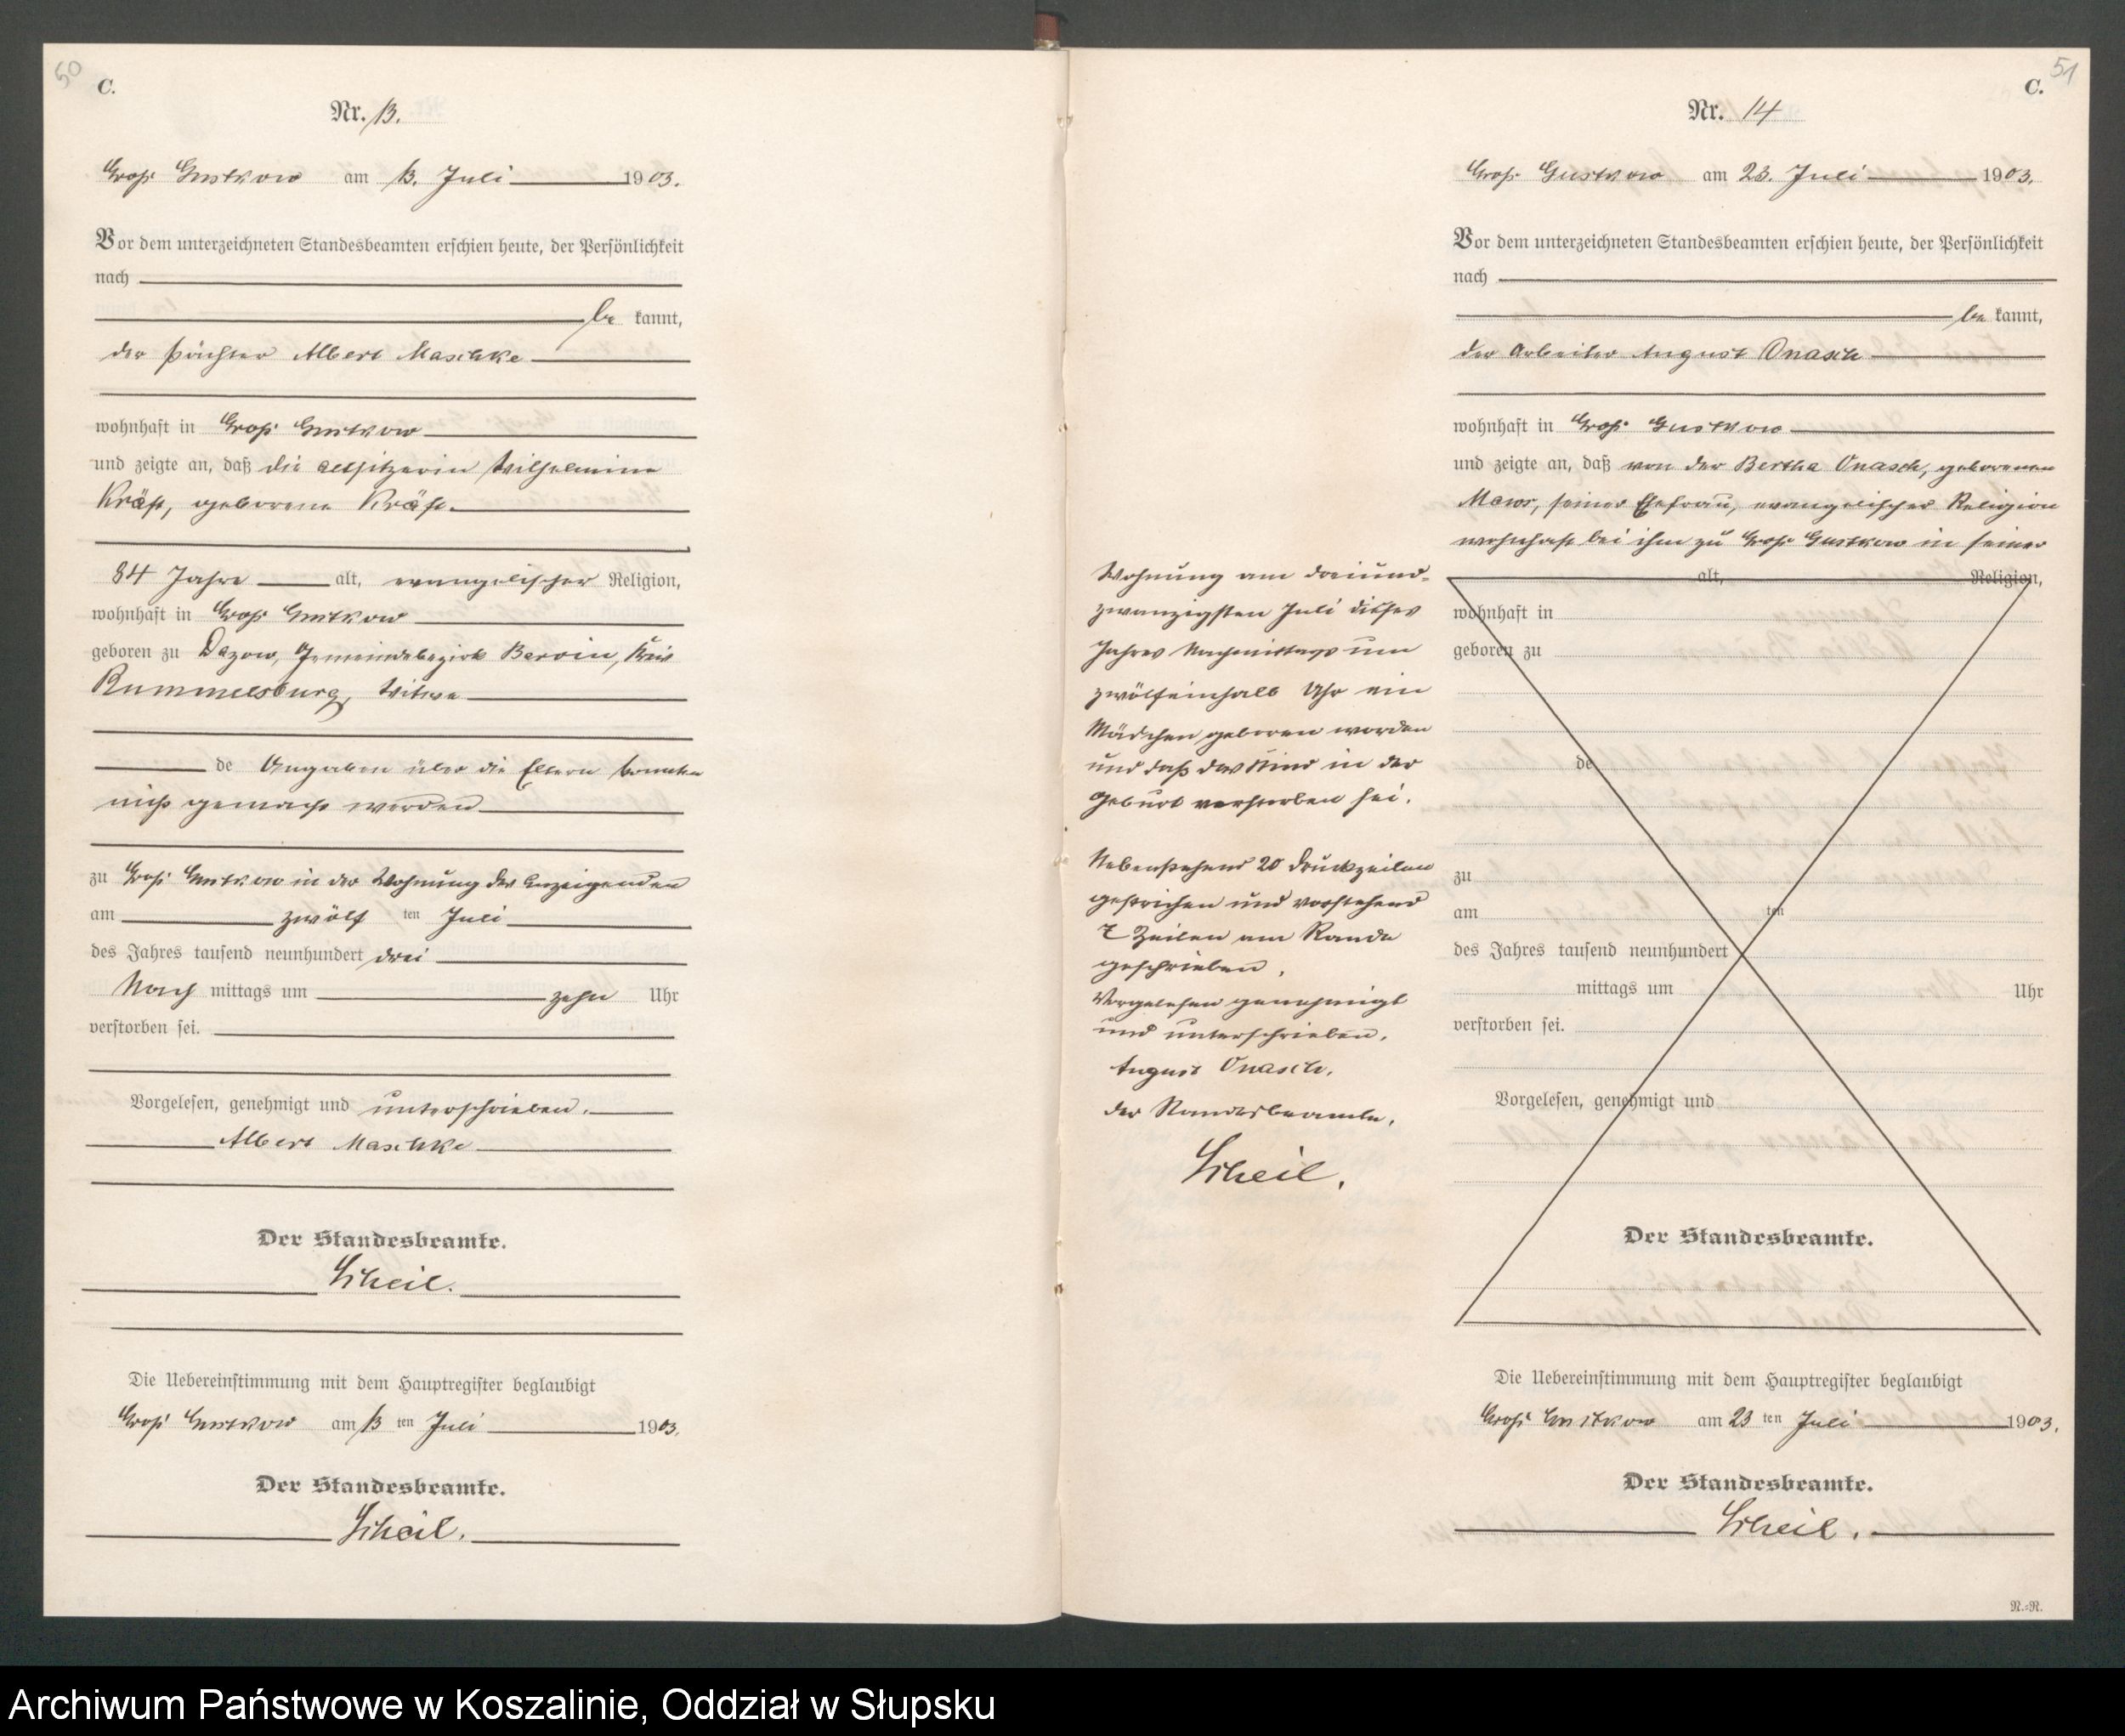 50
C.
Nr. 13.
Groß Gustkow am 13. Juli 1903.
Vor dem unterzeichneten Standesbeamten erschien heute, der Persönlichkeit
nach
be kannt,
der Pächter Albert Maschke
wohnhaft in Groß Gustkow
und zeigte an, daß die Altsitzerin Wilhelmine
Kräft, geborene Kräft.
84 Jahre alt, evangelischer Religion,
wohnhaft in Groß Gustkow
geboren zu Dazow, Gemeindebezirk Barvin, Kreis
Rummelsburg, Witwe
de Angaben über die Eltern konnten
nicht gemacht werden
zu Groß Gustkow in der Wohnung des Anzeigenden
am zwölf ten Juli
des Jahres tausend neunhundert drei
Nach mittags um zehn Uhr
verstorben sei.
Vorgelesen, genehmigt und unterschrieben.
Albert Maschke
Der Standesbeamte.
Scheil.
Die Uebereinstimmung mit dem Hauptregister beglaubigt
Groß Gustkow am 13 ten Juli 1903.
Der Standesbeamte.
Scheil.
51
C.
Nr. 14
Groß Gustkow am 23. Juli 1903.
Vor dem unterzeichneten Standesbeamten erschien heute, der Persönlichkeit
nach
be kannt,
der Arbeiter August Onasch
wohnhaft in Groß Gustkow
und zeigte an, daß von der Bertha Onasch, geborenen
seiner Ehefrau, evangelischer Religion
wohnhaft bei ihm zu Groß Gustkow in seiner
Wohnung am dreiund-
zwanzigsten Juli dieses
Jahres Nachmittags um
zwölfeinhalb Uhr ein
Mädchen geboren worden
und daß das Kind in der
Geburt verstorben sei.
Nebenstehend 20 Druckzeilen
gestrichen und vorstehend
7 Zeilen am Rande
geschrieben.
Vorgelesen genehmigt
und unterschrieben.
August Onasch.
Der Standesbeamte.
Scheil.
alt, Religion,
wohnhaft in
geboren zu
de
zu
am ten
des Jahres tausend neunhundert
mittags um Uhr
verstorben sei.
Vorgelesen, genehmigt und
Der Standesbeamte.
Die Uebereinstimmung mit dem Hauptregister beglaubigt
Groß Gustkow am 23 ten Juli 1903.
Der Standesbeamte.
Scheil.
N.=R.
Archiwum Państwowe w Koszalinie, Oddział w Słupsku